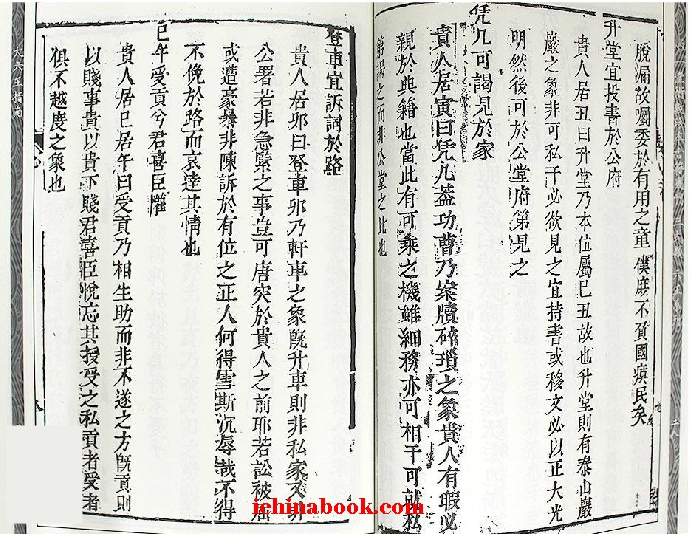 脫漏故囑委於有用之童僕庶不貧國病民矣
升堂宜投書於公府
貴人居丑曰升堂乃本位屬巳丑故也升堂則有泰山巖
巖之象非可私干必欲見之宜持書或移文必以正大光
明然後可於公堂府第見之
凭几可謁見於家
貴人居寅曰凭几蓋功曹乃案牘碎瑣之象貴人有瑕必
親於典籍也當此有可乘之機雖細務亦可相干可就私
第謁之而非公堂之比也
登車宜訴詞於路
貴人居卯曰登車卯乃軒車之象旣升車則非私家又非
公署若非急緊之事豈可唐突於貴人之前耶若訟被屈
或遭豪暴非陳訴於有位之正人何得雪斯沉辱哉不得
不俛於路而哀達其情也
巳午受貢兮君喜臣懽
貴人居巳居午曰受貢乃相生助而非不遂之方旣貢則
以賤事貴以貴下賤君喜臣悅忘其授受之私貢者受者
俱不越度之象也
ichinabook.com